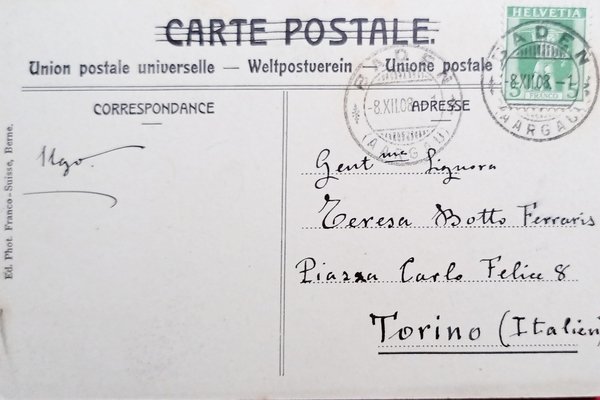 CARTE POSTALE.
Union postale universelle — Weltpostverein — Unione postale
HELVETIA
5 5
FRANCO
BADEN
-8.XII.08.
(AARGAU)
BADEN
-8.XII.08.-1
(AARGAU)
CORRESPONDANCE
ADRESSE
Ugo
Ed. Phot. Franco-Suisse, Berne.
Gentma Signora
Teresa Botto Ferraris
Piazza Carlo Felice 8
Torino (Italien)